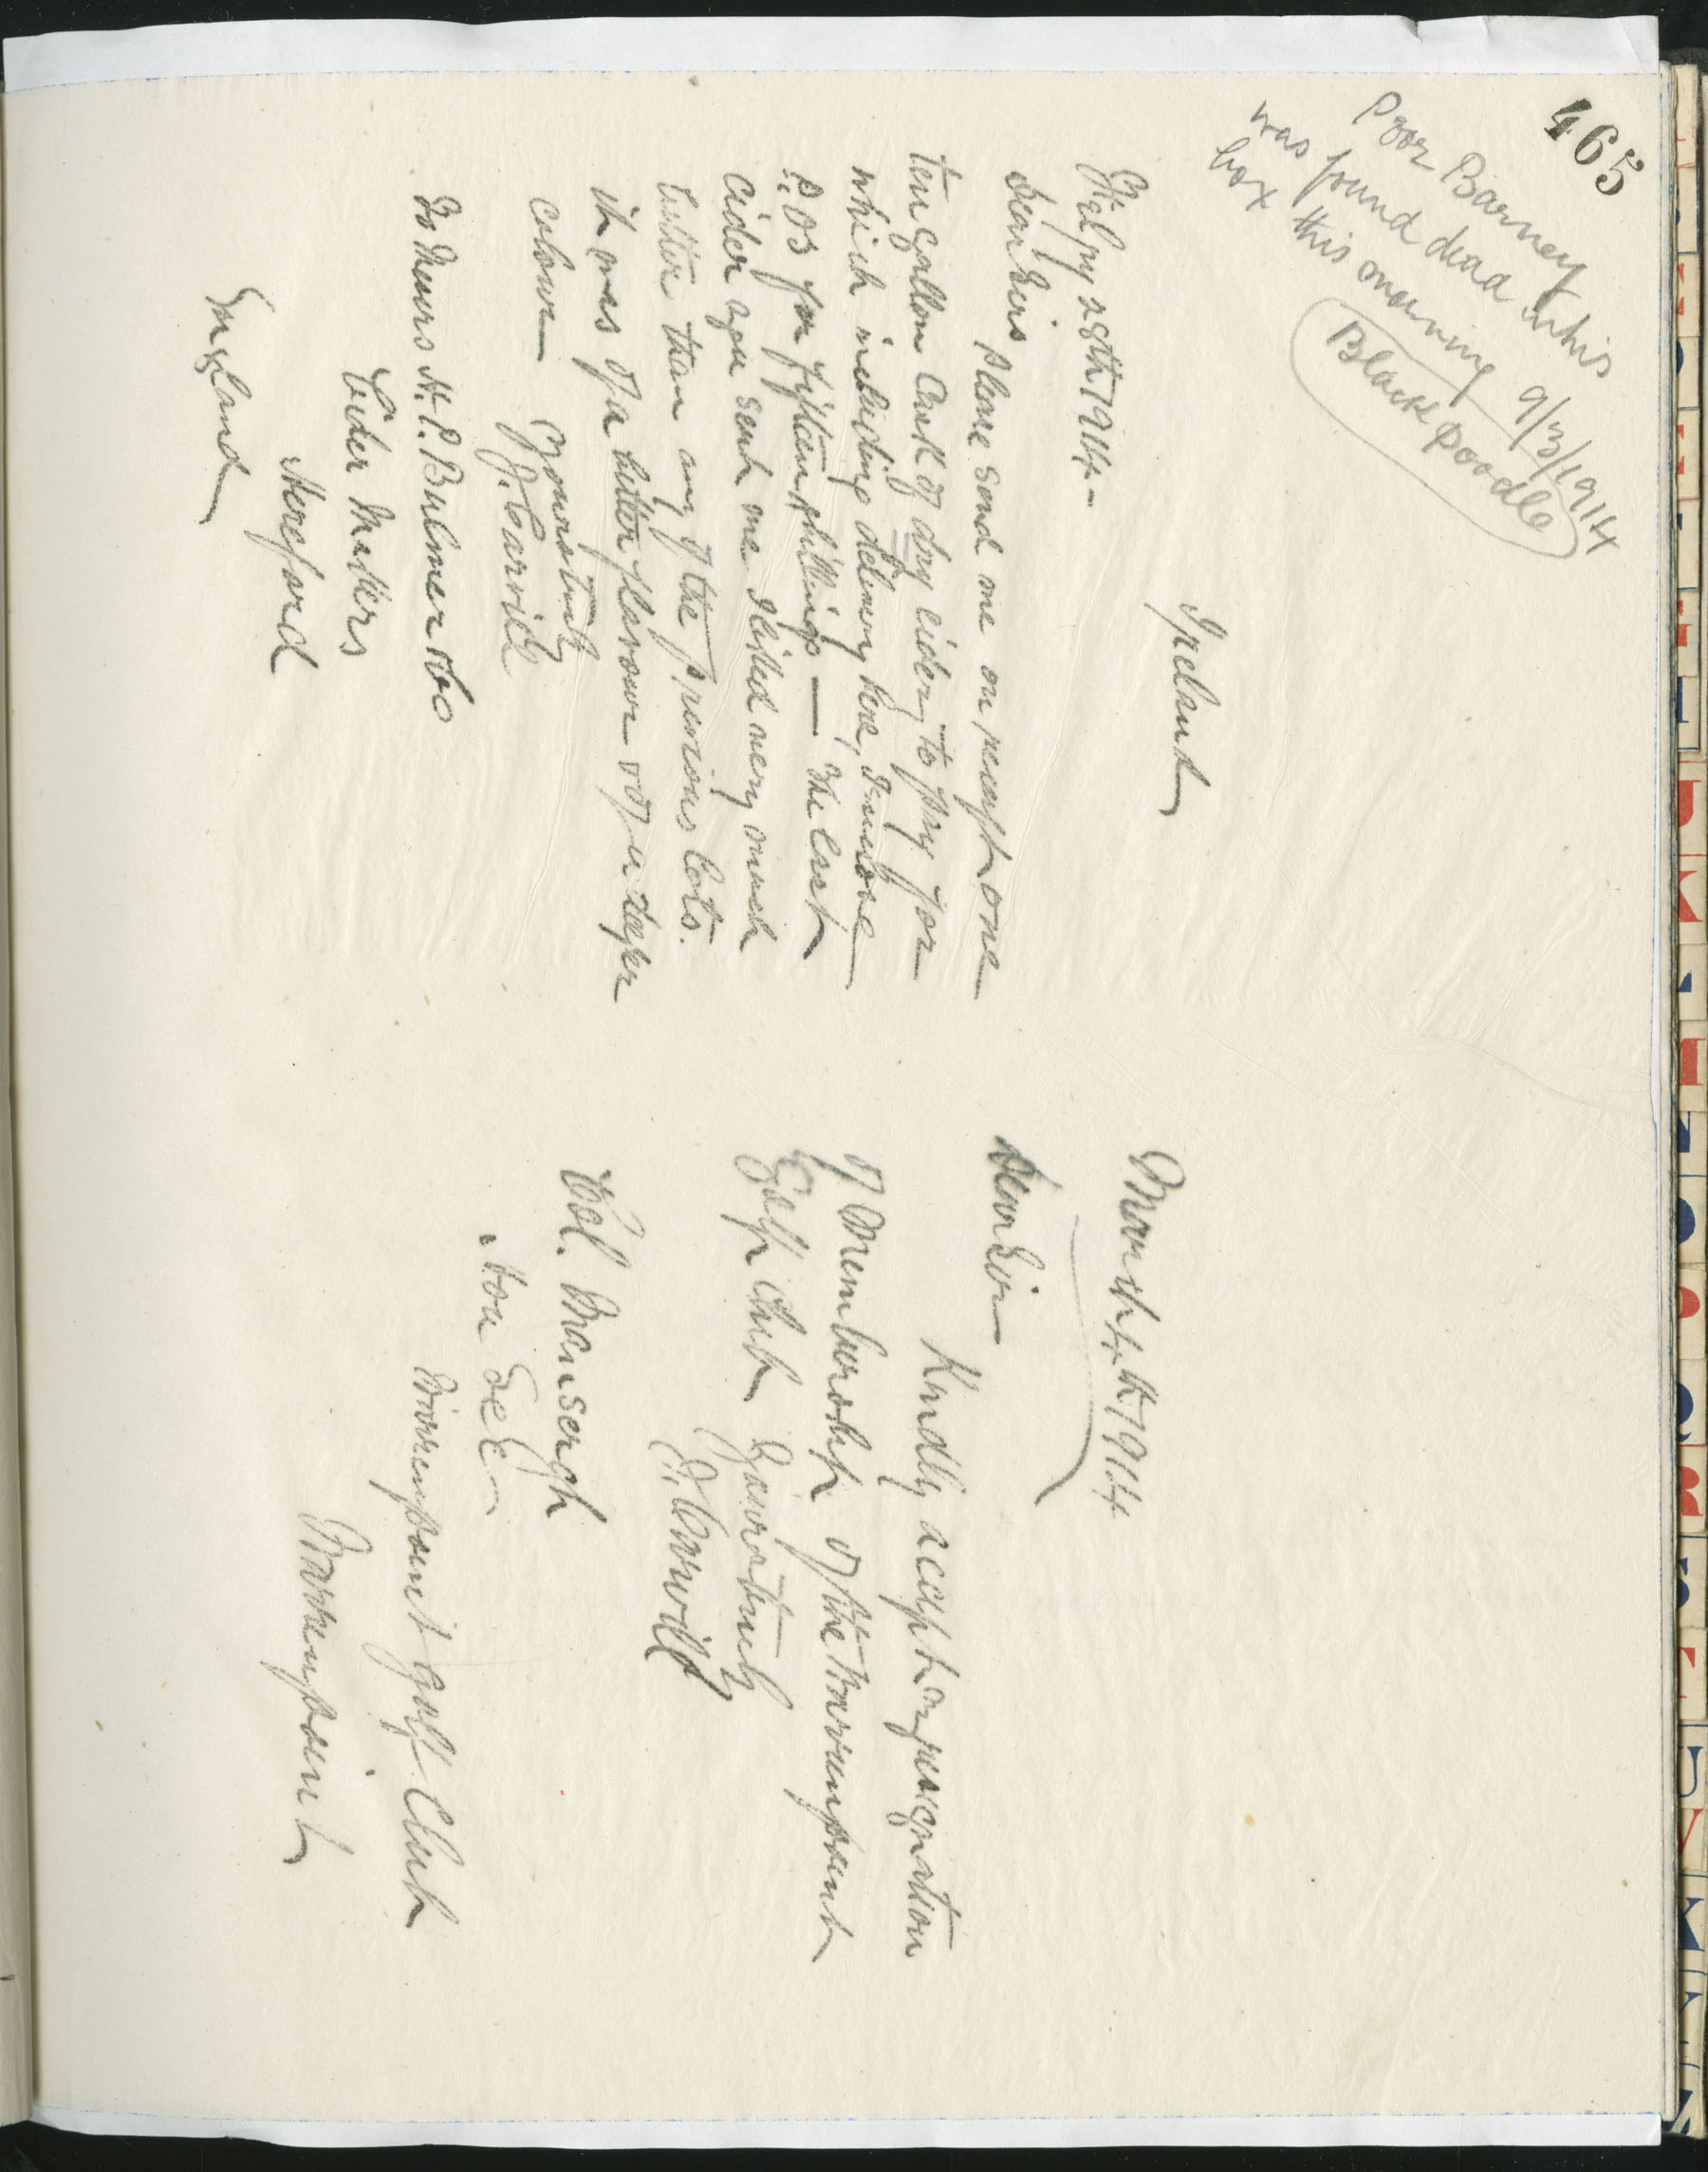 465
Poor Barney
was found dead in his
box this morning 9/3/1914
Black Poodle
Ireland
28th 1914 -
Dear Sirs
Please send me on receipt one
ten gallon Cask of dry cider, to pay for
which including delivery here, I enclose
P.O's for fifteen shillings — The last
cider you sent me I liked very much
better than any of the previous lots.
it was of a better flavour & of a deeper
colour — Yours truly
F. Carvill
To Messrs H.P. Bulmer & Co
Cider Makers
Hereford
England
March 4th 1914
Dear Sir
Kindly accept my resignation
of Membership of the Warrenpoint
Golf Club Yours truly
F. Carvill
Col. Mansergh
Hon Sec
Warrenpoint Golf Club
Warrenpoint